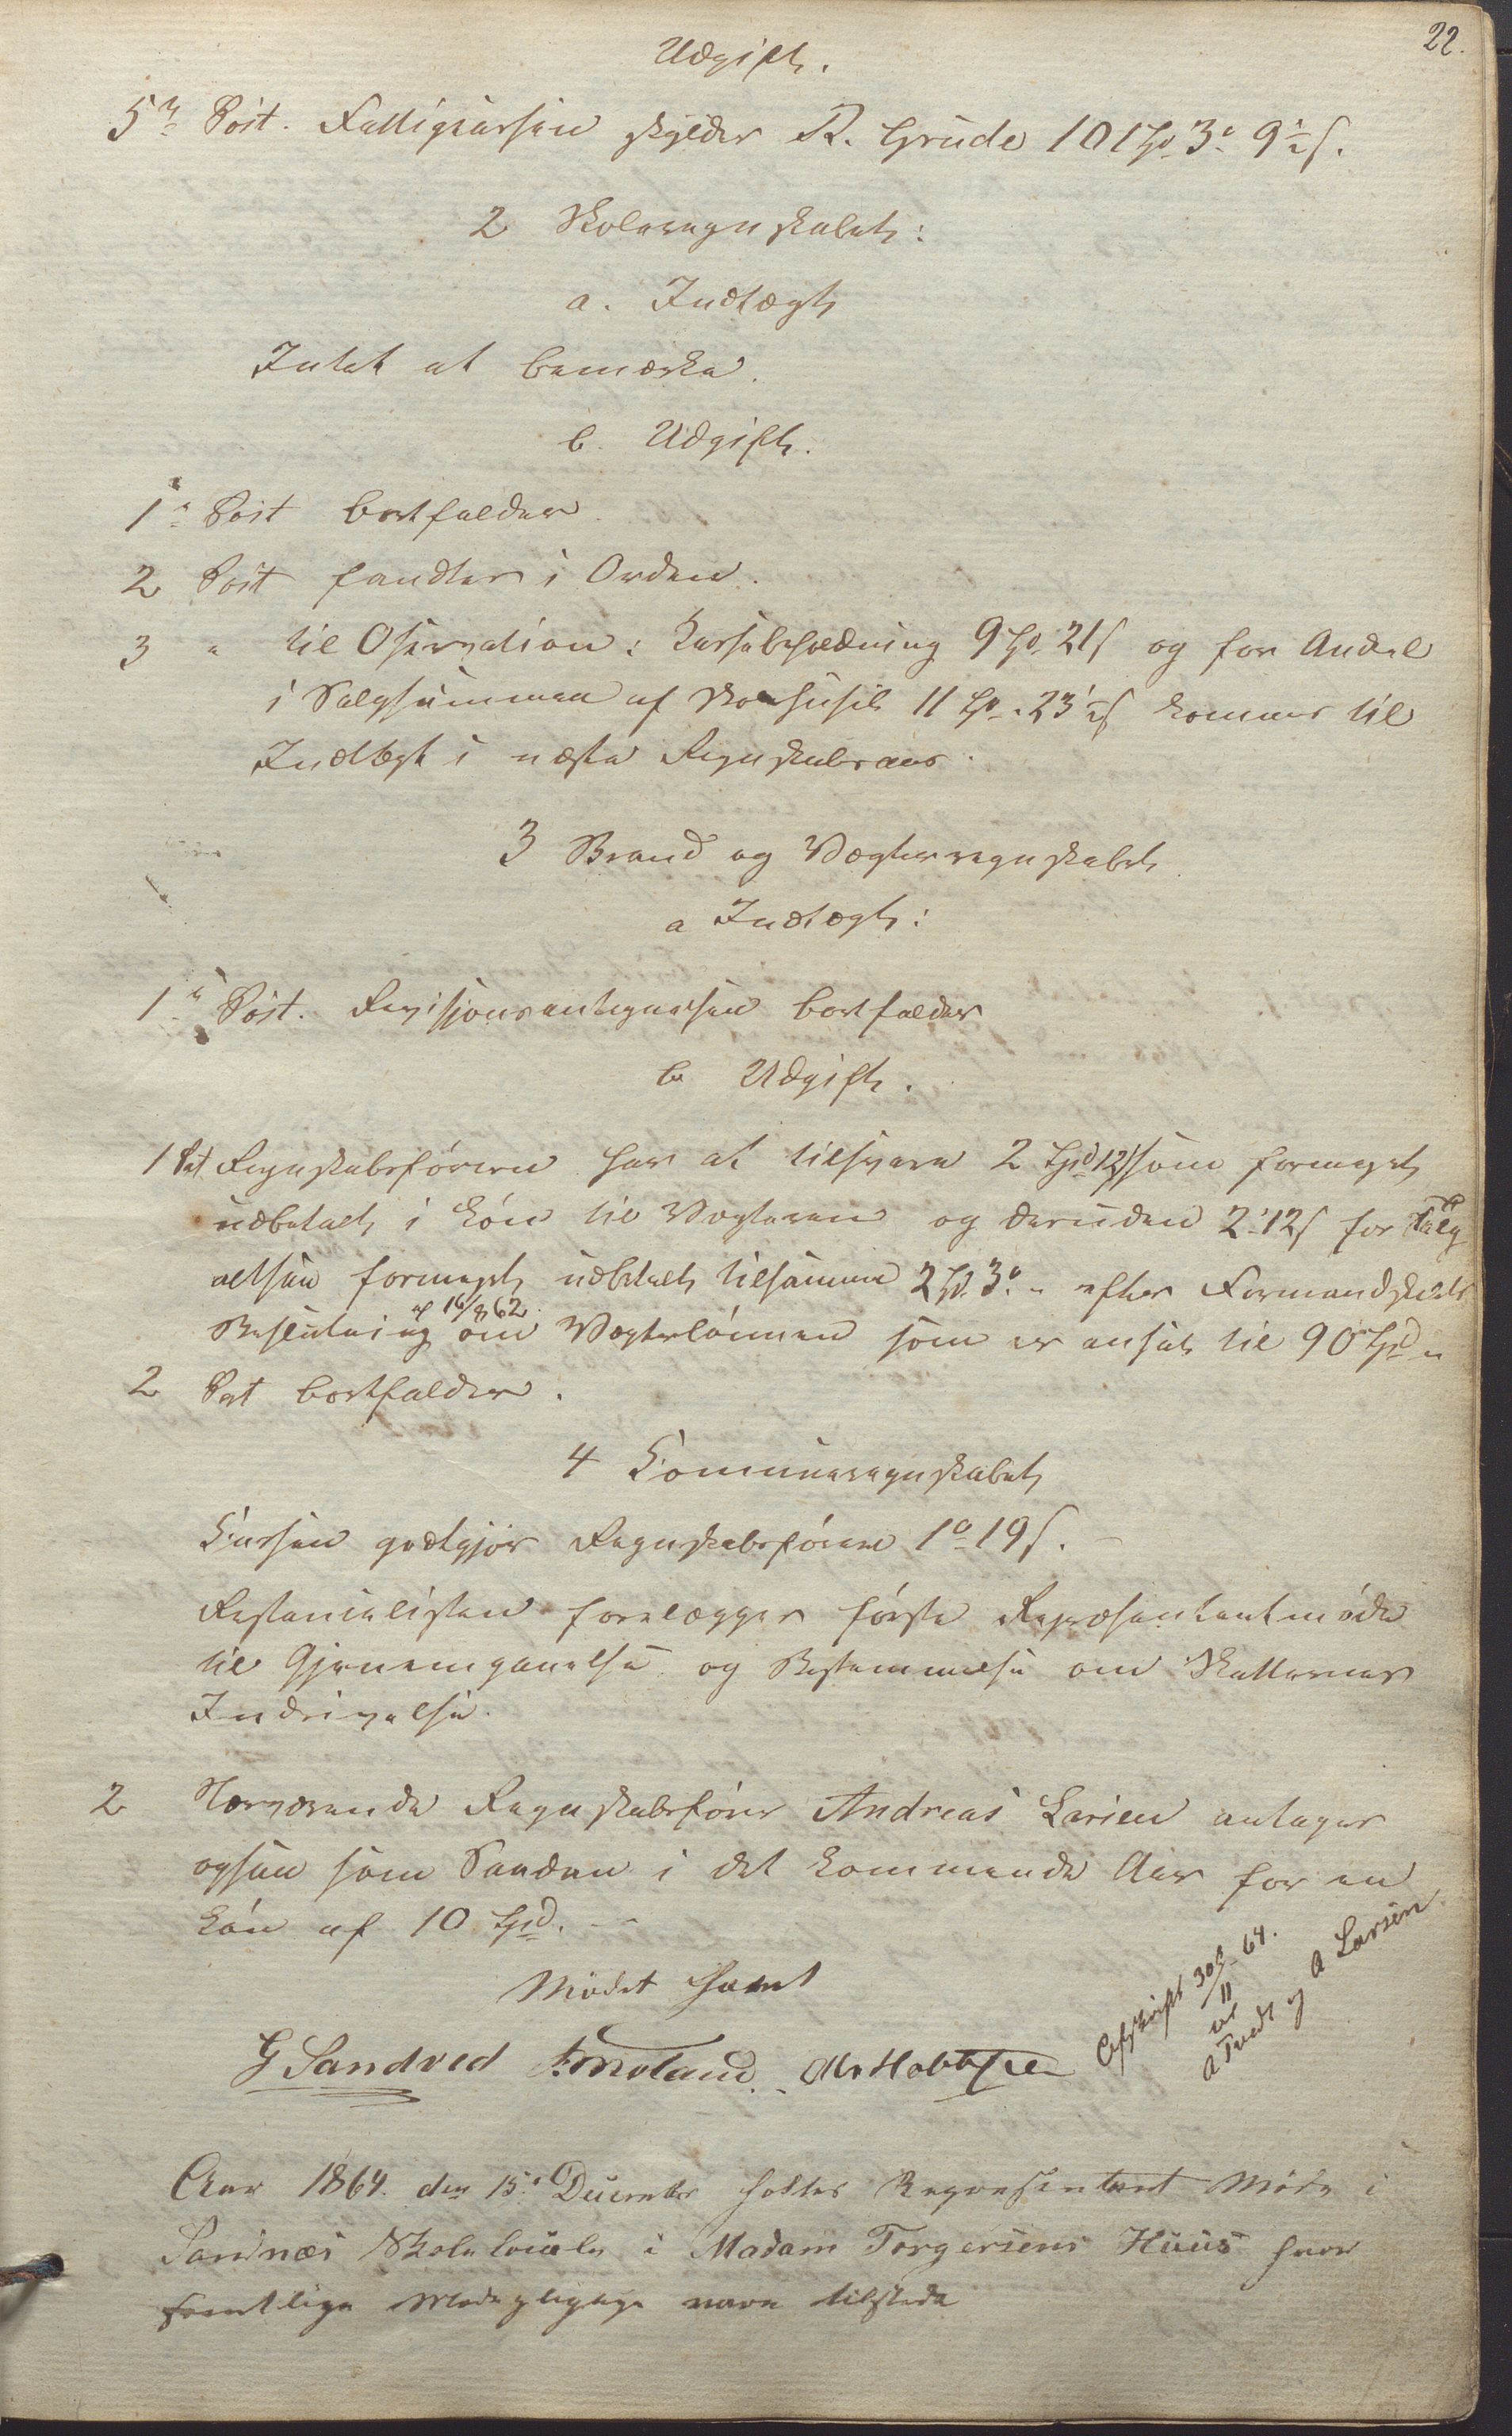 22.
Udgift.
5te Post. Fattigkassen skylder R. Grude 101 Spd 3o 9½ s.
2 Skoleregnskabet:
a. Indtægt
Intet at bemærke.
b. Udgift.
1e Post bortfalder
2 Post fandtes i Orden.
3 " til Observation: Kassebeholdning 9 Spd. 21 s og for Andel
i Salgsummen af 11 Spd. " 23½ s kommer til
Indtægt i næste Regnskabsaar.
3 Brand og Vægterregnskabet
a Indtægt:
1e Post. Revisjonsantegnelsen bortfalder
b Udgift.
1 Pst Regnskabsføreren har at tilsvare 2 Spd 12 s som formeget
udbetalt i Løn til Vægteren og desuden 2o 12 s for Talg
altsaa formeget udbetalt tilsamme 2 Spd. 3o " efter Formandskabets
Beslutning af 16/8 62 om Vægterlønnen som er ansat til 90 Spd "
2 Pst bortfalder.
4 Communeregnskabet
Cassen godtgjør Regnskabsføreren 1o 19 s. –
Restancelisten forelægges første Repræsentantmøde
til Gjennemgaaelse og Bestemmelse om Skatternes
Inddrivelse.
2 Nærværende Regnskabsfører Andreas Larsen antages
ogsaa som Saadan i det kommende Aar for en
Løn af 10 Spd. –
Mødet hævet
G Sandved
Afskrift 30te/11 64.
ved
A Tvedt og A Larsen
Aar 1864. den 15de December holdtes Repræsentant Møde i
Sandnæs Skolelocale i Madam Torgersens Huus hvor
samtlige Mødepligtige vare tilstede